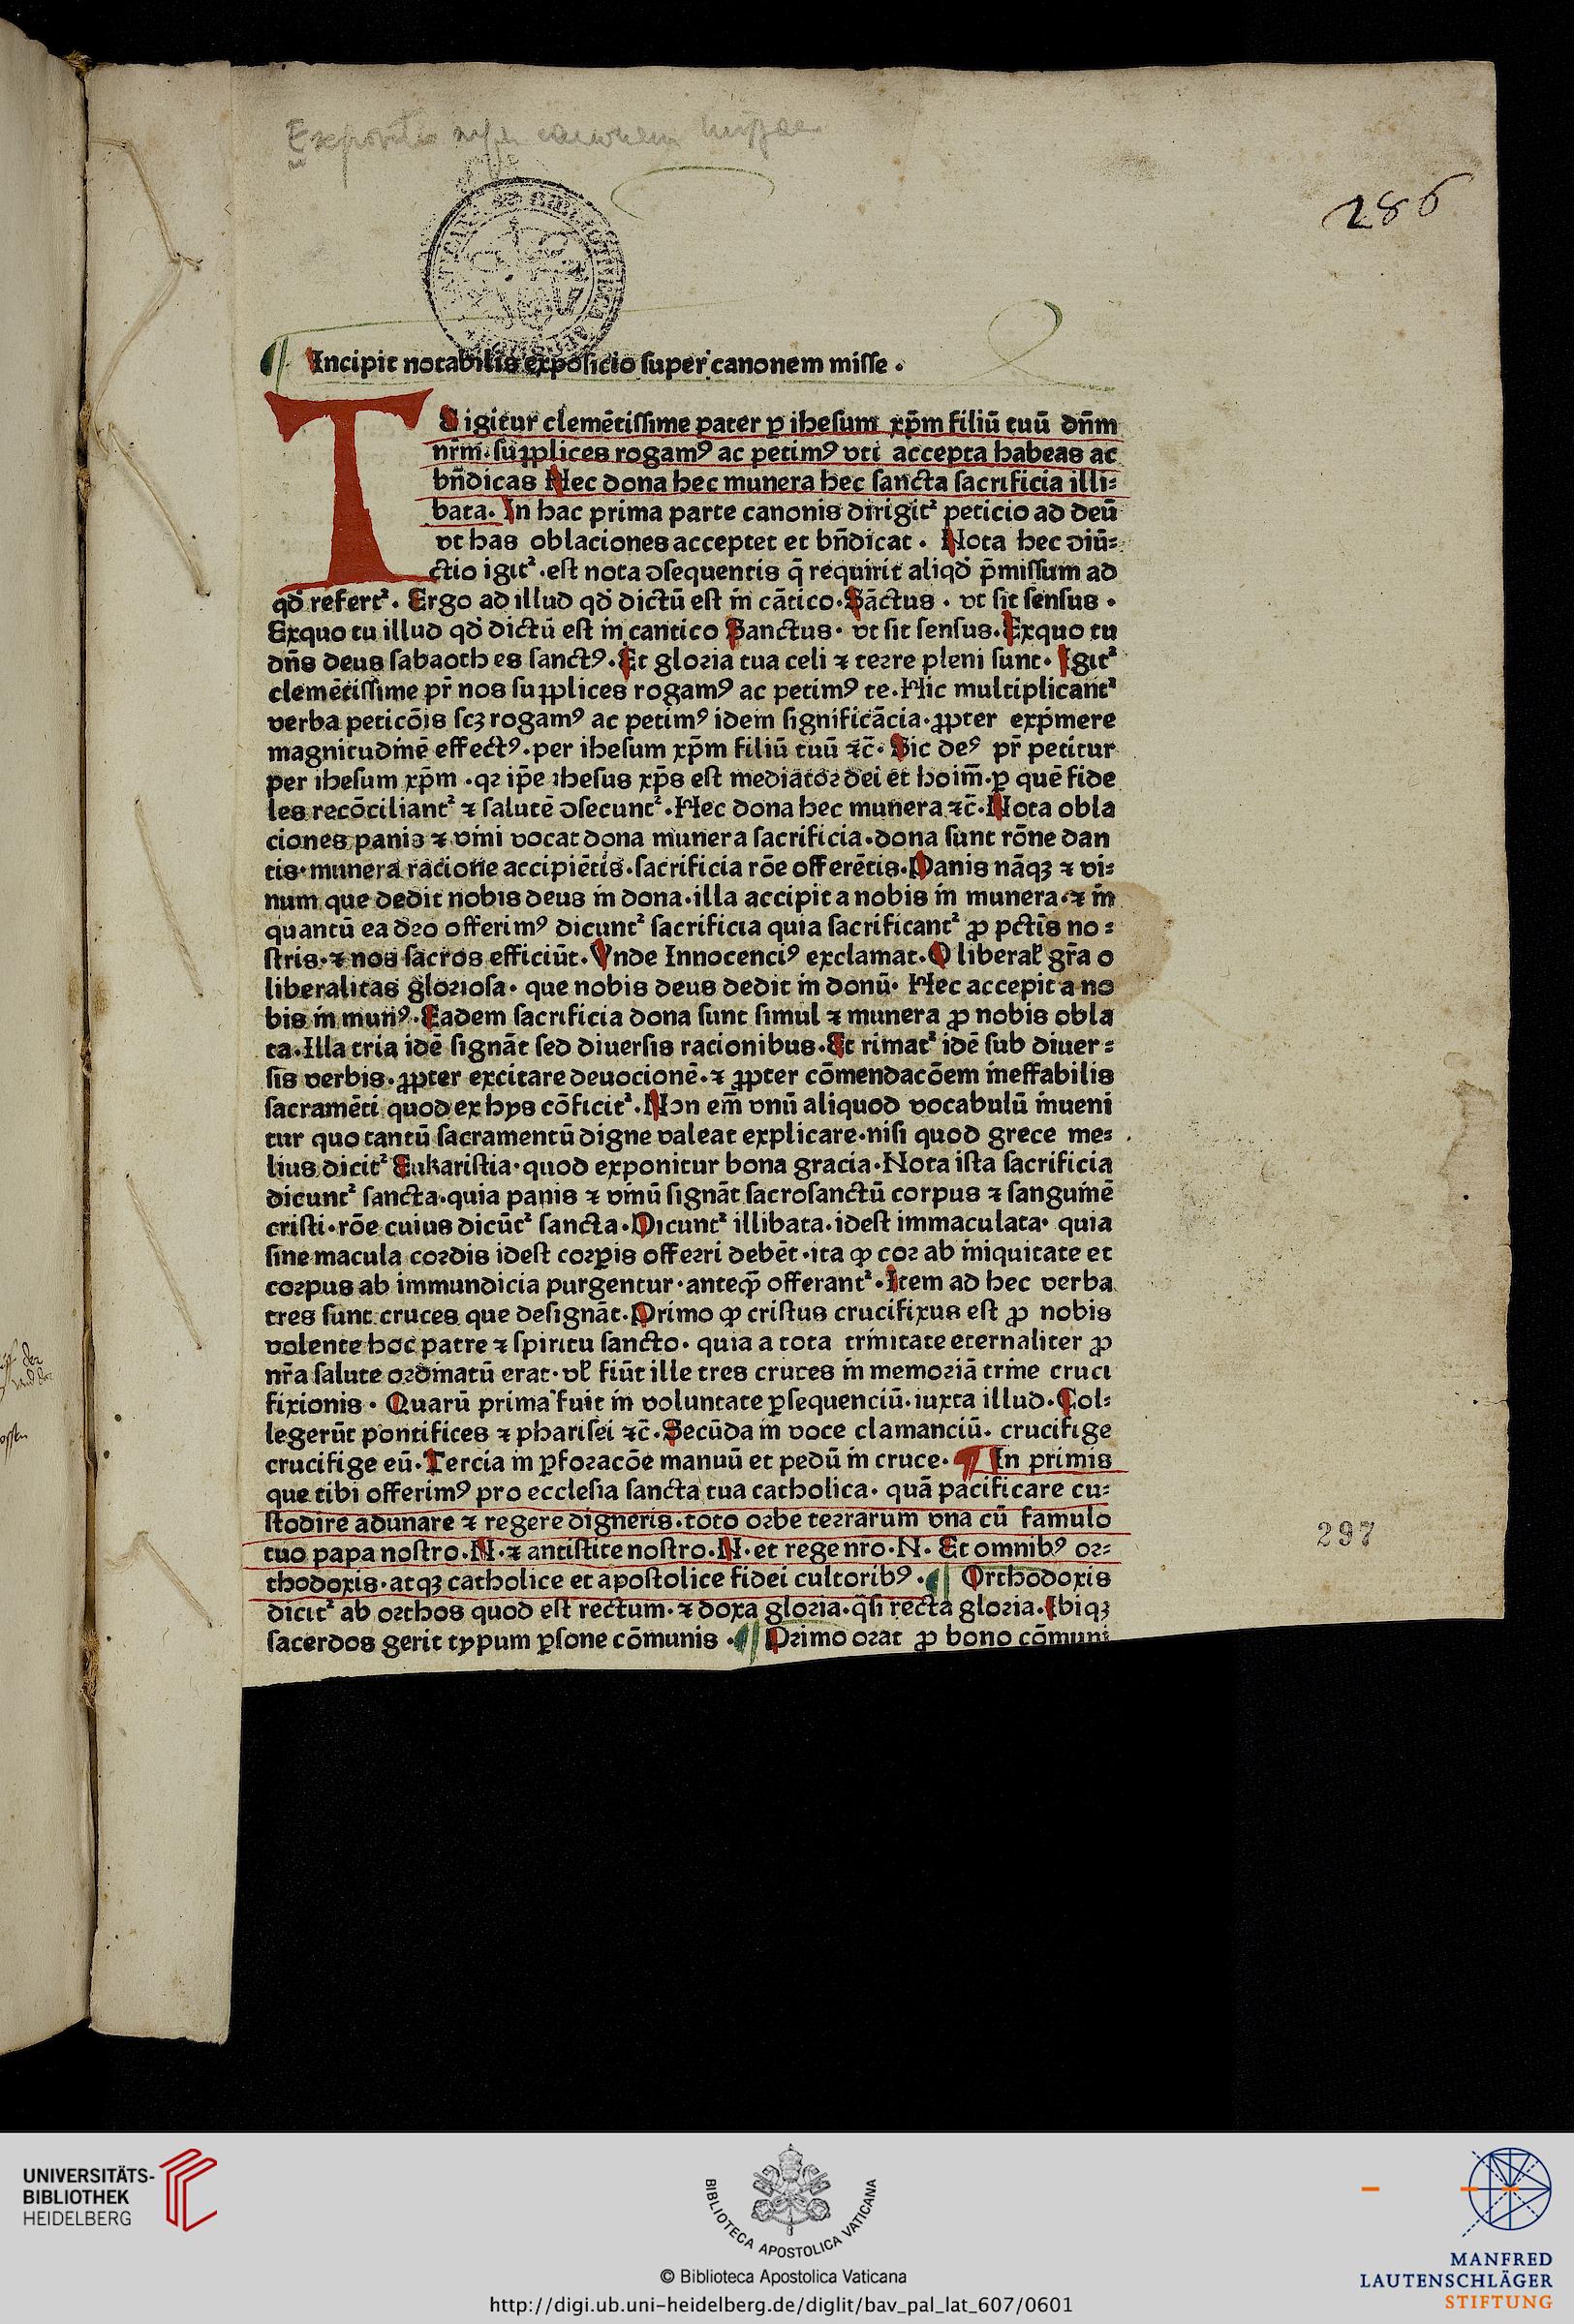 Expositio super canonem missae
286
Incipit notabilis exposicio super canonem misse .
TE igitur clemētissime pater ꝑ ihesum xp̄m filiū tuū dn̄m
nr̄m. suꝓplices rogamꝰ ac petimꝰ vti accepta habeas ac
bn̄dicas Hec dona hec munera hec sancta sacrificia illi⸗
bata. In hac prima parte canonis dirigit᷑ peticio ad deū
vt has oblaciones acceptet et bn̄dicat . Nota hec ↄiū⸗
ctio igit᷑ .est nota ↄsequentis q̄ requirit aliqd̓ p̄missum ad
qd̓ refert᷑ . Ergo ad illud qd̓ dictū est in cātico. Sāctus . vt sit sensus .
Exquo tu illud qd̓ dictū est in cantico Sanctus . vt sit sensus. Exquo tu
dn̄s deus sabaoth es sanctꝰ . Et gloꝛia tua celi ⁊ teꝛre pleni sunt . Igit᷑
clemētissime pr̄ nos suꝓplices rogamꝰ ac petimꝰ te. Hic multiplicant᷑
verba peticōis scꝫ rogamꝰ ac petimꝰ idem significācia .ꝓpter exp̄mere
magnitudinē effectꝰ .per ihesum xp̄m filiū tuū ⁊c̄. Sic deꝰ pr̄ petitur
per ihesum xp̄m .qꝛ ip̄e ihesus xp̄s est mediatoꝛ dei et hoim̄ .ꝑ quē fide
les recōciliant᷑ ⁊ salutē ↄsecunt᷑ . Hec dona hec munera ⁊c̄. Nota obla
ciones panis ⁊ vini vocat dona munera sacrificia .dona sunt rōne dan
tis .munera racione accipiētis .sacrificia rōe offerētis. Panis nāqꝫ ⁊ vi⸗
num que dedit nobis deus in dona .illa accipit a nobis in munera .⁊ in
quantū ea dꝛo offerimꝰ dicunt᷑ sacrificia quia sacrificant᷑ ꝓ pctīs no⸗
stris .⁊ nos sacros efficiūt. Vnde Innocenciꝰ exclamat. O liberaƚ gr̄a o
liberalitas gloꝛiosa . que nobis deus dedit in donū. Hec accepit a no
bis in munꝰ . Eadem sacrificia dona sunt simul ⁊ munera ꝓ nobis obla
ta. Illa tria idē signāt sed diuersis racionibus. Et rimat᷑ idē sub diuer⸗
sis verbis .ꝓpter excitare deuocionē .⁊ ꝓpter cōmendacōem ineffabilis
sacramēti quod ex hys cōficit᷑ . Non em̄ vnū aliquod vocabulū inueni
tur quo tantū sacramentū digne valeat explicare .nisi quod grece me⸗
lius dicit᷑ Eukaristia .quod exponitur bona gracia. Nota ista sacrificia
dicunt᷑ sancta .quia panis ⁊ vinū signāt sacrosanctū corpus ⁊ sanguinē
cristi .rōe cuius dicūt᷑ sancta. Dicunt᷑ illibata .idest immaculata . quia
sine macula coꝛdis idest coꝛꝑis offeꝛri debēt .ita ꝙ coꝛ ab iniquitate et
coꝛpus ab immundicia purgentur .anteqꝫ̄ offerant᷑ . Item ad hec verba
tres sunt cruces que designāt. Primo ꝙ cristus crucifixus est ꝓ nobis
volente hoc patre ⁊ spiritu sancto . quia a tota trinitate eternaliter ꝓ
nr̄a salute oꝛdinatū erat .vƚ fiūt ille tres cruces in memoꝛiā trine cruci
fixionis . Quarū prima fuit in voluntate ꝑsequenciū. iuxta illud. Col⸗
legerūt pontifices ⁊ pharisei ⁊c̄. Secūda in voce clamanciū. crucifige
crucifige eū. Tercia in ꝑfoꝛacōe manuū et pedū in cruce. ¶ In primis
que tibi offerimꝰ pro ecclesia sancta tua catholica . quā pacificare cu⸗
stodire adunare ⁊ regere digneris .toto oꝛbe teꝛrarum vna cū famulo
tuo papa nostro. N. ⁊ antistite nostro. N. et rege nro. N. Et omnibꝰ oꝛ⸗
thodoxis .atqꝫ catholice et apostolice fidei cultoribꝰ . ¶ Orthodoxis
dicit᷑ ab oꝛthos quod est rectum .⁊ doxa gloꝛia .q̄si recta gloꝛia. Ibiqꝫ
sacerdos gerit typum ꝑsone cōmunis . ¶ Pꝛimo oꝛat ꝓ bono cōmuni
297
UNIVERSITÄTS-
BIBLIOTHEK
HEIDELBERG
BIBLIOTECA APOSTOLICA VATICANA
© Biblioteca Apostolica Vaticana
http://digi.ub.uni-heidelberg.de/diglit/bav_pal_lat_607/0601
MANFRED
LAUTENSCHLÄGER
STIFTUNG